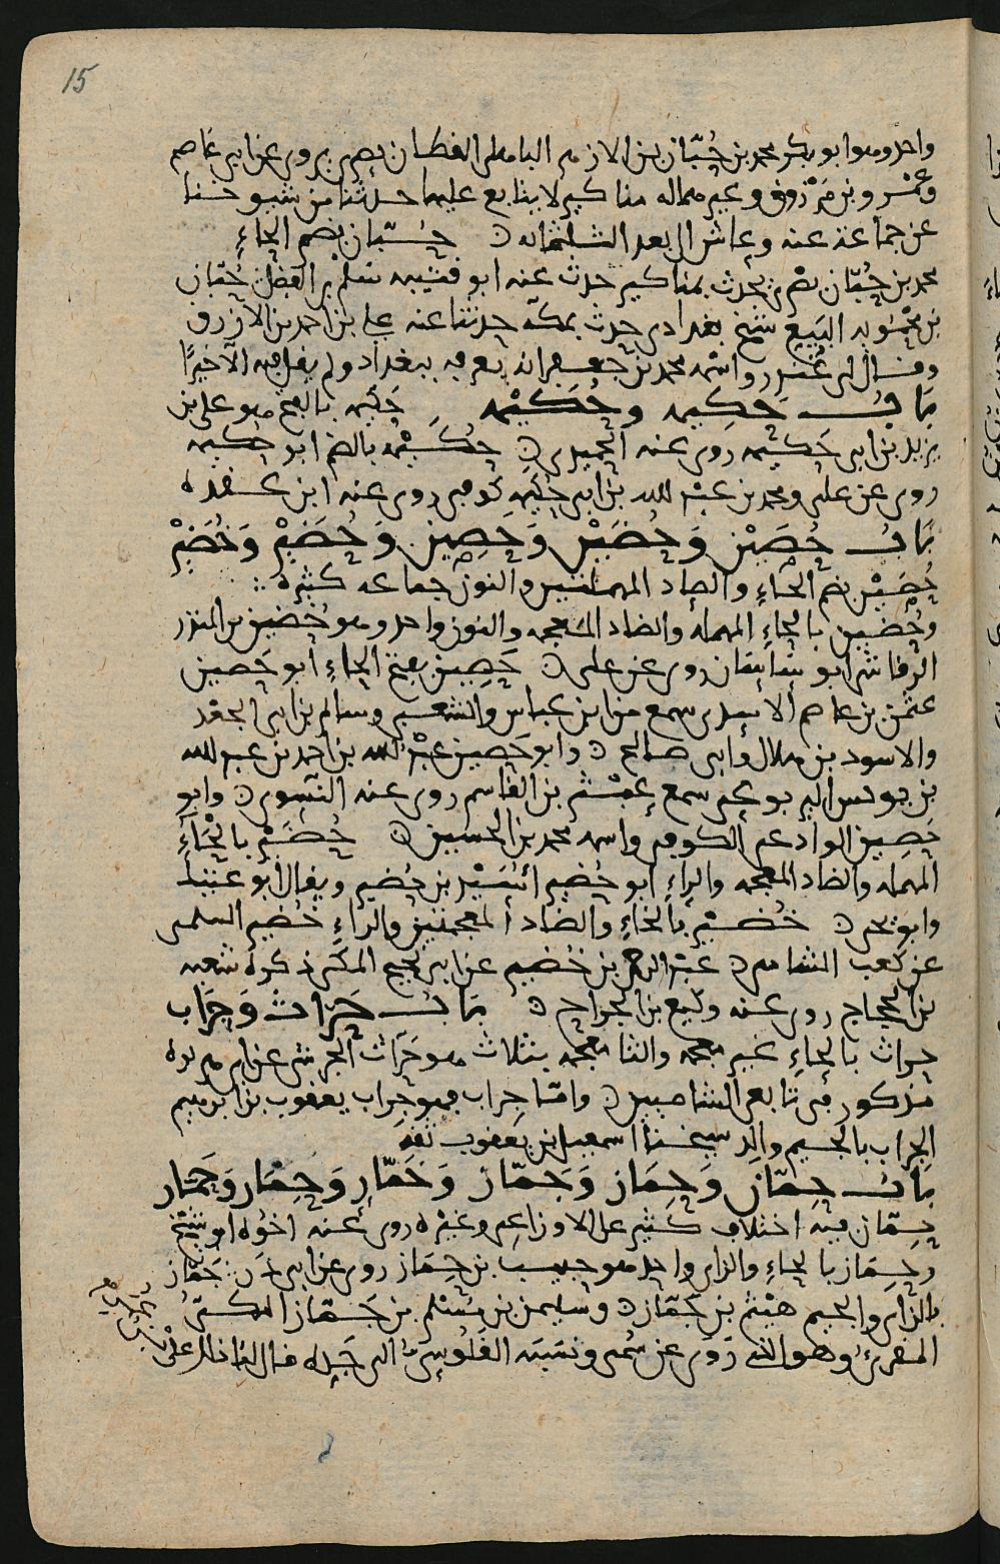 15
واحد وهو ابو بكر محمد بن حُبّان بن الازهر الباهلي القطان بصري يروي عن ابي عاصم
وعَمْرو بن مَرْزوق وغيرهما له مناكير لا يتابع عليها حدثنا من شيوخنا
عن جماعة عنه وعاش الى بعد الثلثمائه حُبّان بضم الحاءِ
محمد بن حُبّان بصْري يحدث بمناكير حدث عنه ابو قتيبه سَلْم بن الفضل حُبّان
بن البَيِّع شيخ بغدادي حدث بمكّه حدثنا عنه علي بن احمد بن الازرق
وقال لي واسْمه محمد بن جعفر انه يعرفه ببغداد ولم يقل فيه الا خيرًا
بَابُ حَكِيم وحُكَيْم حَكِيم بالفتح هو علي بن
يزيد بن ابي حَكيم روى عنه الحُميدي حُكَيْم بالضم ابو حُكيم
روى عن علي ومحمد بن عبْد الله بن ابي حُكَيم كوفي روى عنه ابن عقده
بَابُ حُصَيْن وَحُضَيْن وَحَصِين وَحُضَيْر وَخُضَيْر
حُصَيْن بضم الحاءِ والصاد المهملتين والنون جماعه كثيره
وحُضين بالحاءِ المهمله والضاد المعجمه والنون واحد وهو حُضين بن المنذر
الرقاشي ابو ساسان روى عن علي حَصِين بفتح الحاءِ ابو حَصين
عثمن بن عاصم الاسدي سمع من ابن عباس والشعبي وسالم بن ابي الجعد
والاسود بن هلال وابي صالح وابو حَصِين عبْد الله بن احمد بن عبد الله
بن يونس اليربوعي سمع عبْثر بن القاسم روى عنه النسوي وابو
حَصِين الوادعي الكوفي واسمه محمد بن الحسين حُضَيْر بالحَاءِ
المهمله والضاد المعجمه والراءِ ابو حُضير اُسَيْد بن حُضير ويقال ابو عتيك
وابو يحيى خُضَيْر بالخاءِ والضاد المعجمتين والراءِ خُضير السلمي
عن كعب الشامي عبْد الرحمن بن خُضير عن ابي نجيح المكي ذكره شعبه
بن الحجاج روى عنه وكيع بن الجراح بَابُ حَرَّاث وَجِرَاب
حراث بالحاءِ غير معجمه والثا معجمه بثلاث هو حَرّاث الجرشي عن ابي هريره
مذكور في تابعي الشاميين وامّا جِراب فهو جِراب يعقوب بن ابرهيم
الجِراب بالجيم والد شيخنا اسمعيل بن يعقوب ثقه
بَابُ حِمّان وَحِمَاز وَجَمّاز وَخَمَّار وَحِمَار وَحَمّار
حِمّان فيه اختلاف كثير عن الاوزاعي وغيْره روى عنه اخوه ابو شيْخ
وحِمَاز بالحاءِ والزاي واحد هو حبيب بن حِمَاز روى عن ابي ذر جَمّاز
بالزاي والجيم هيْثم بن جَمّاز وسليمن بن مُسْلم بن جَمّاز المكيُّ
المقريءُ وهو الذي رَوى عن وتمَّمه القلُوسي